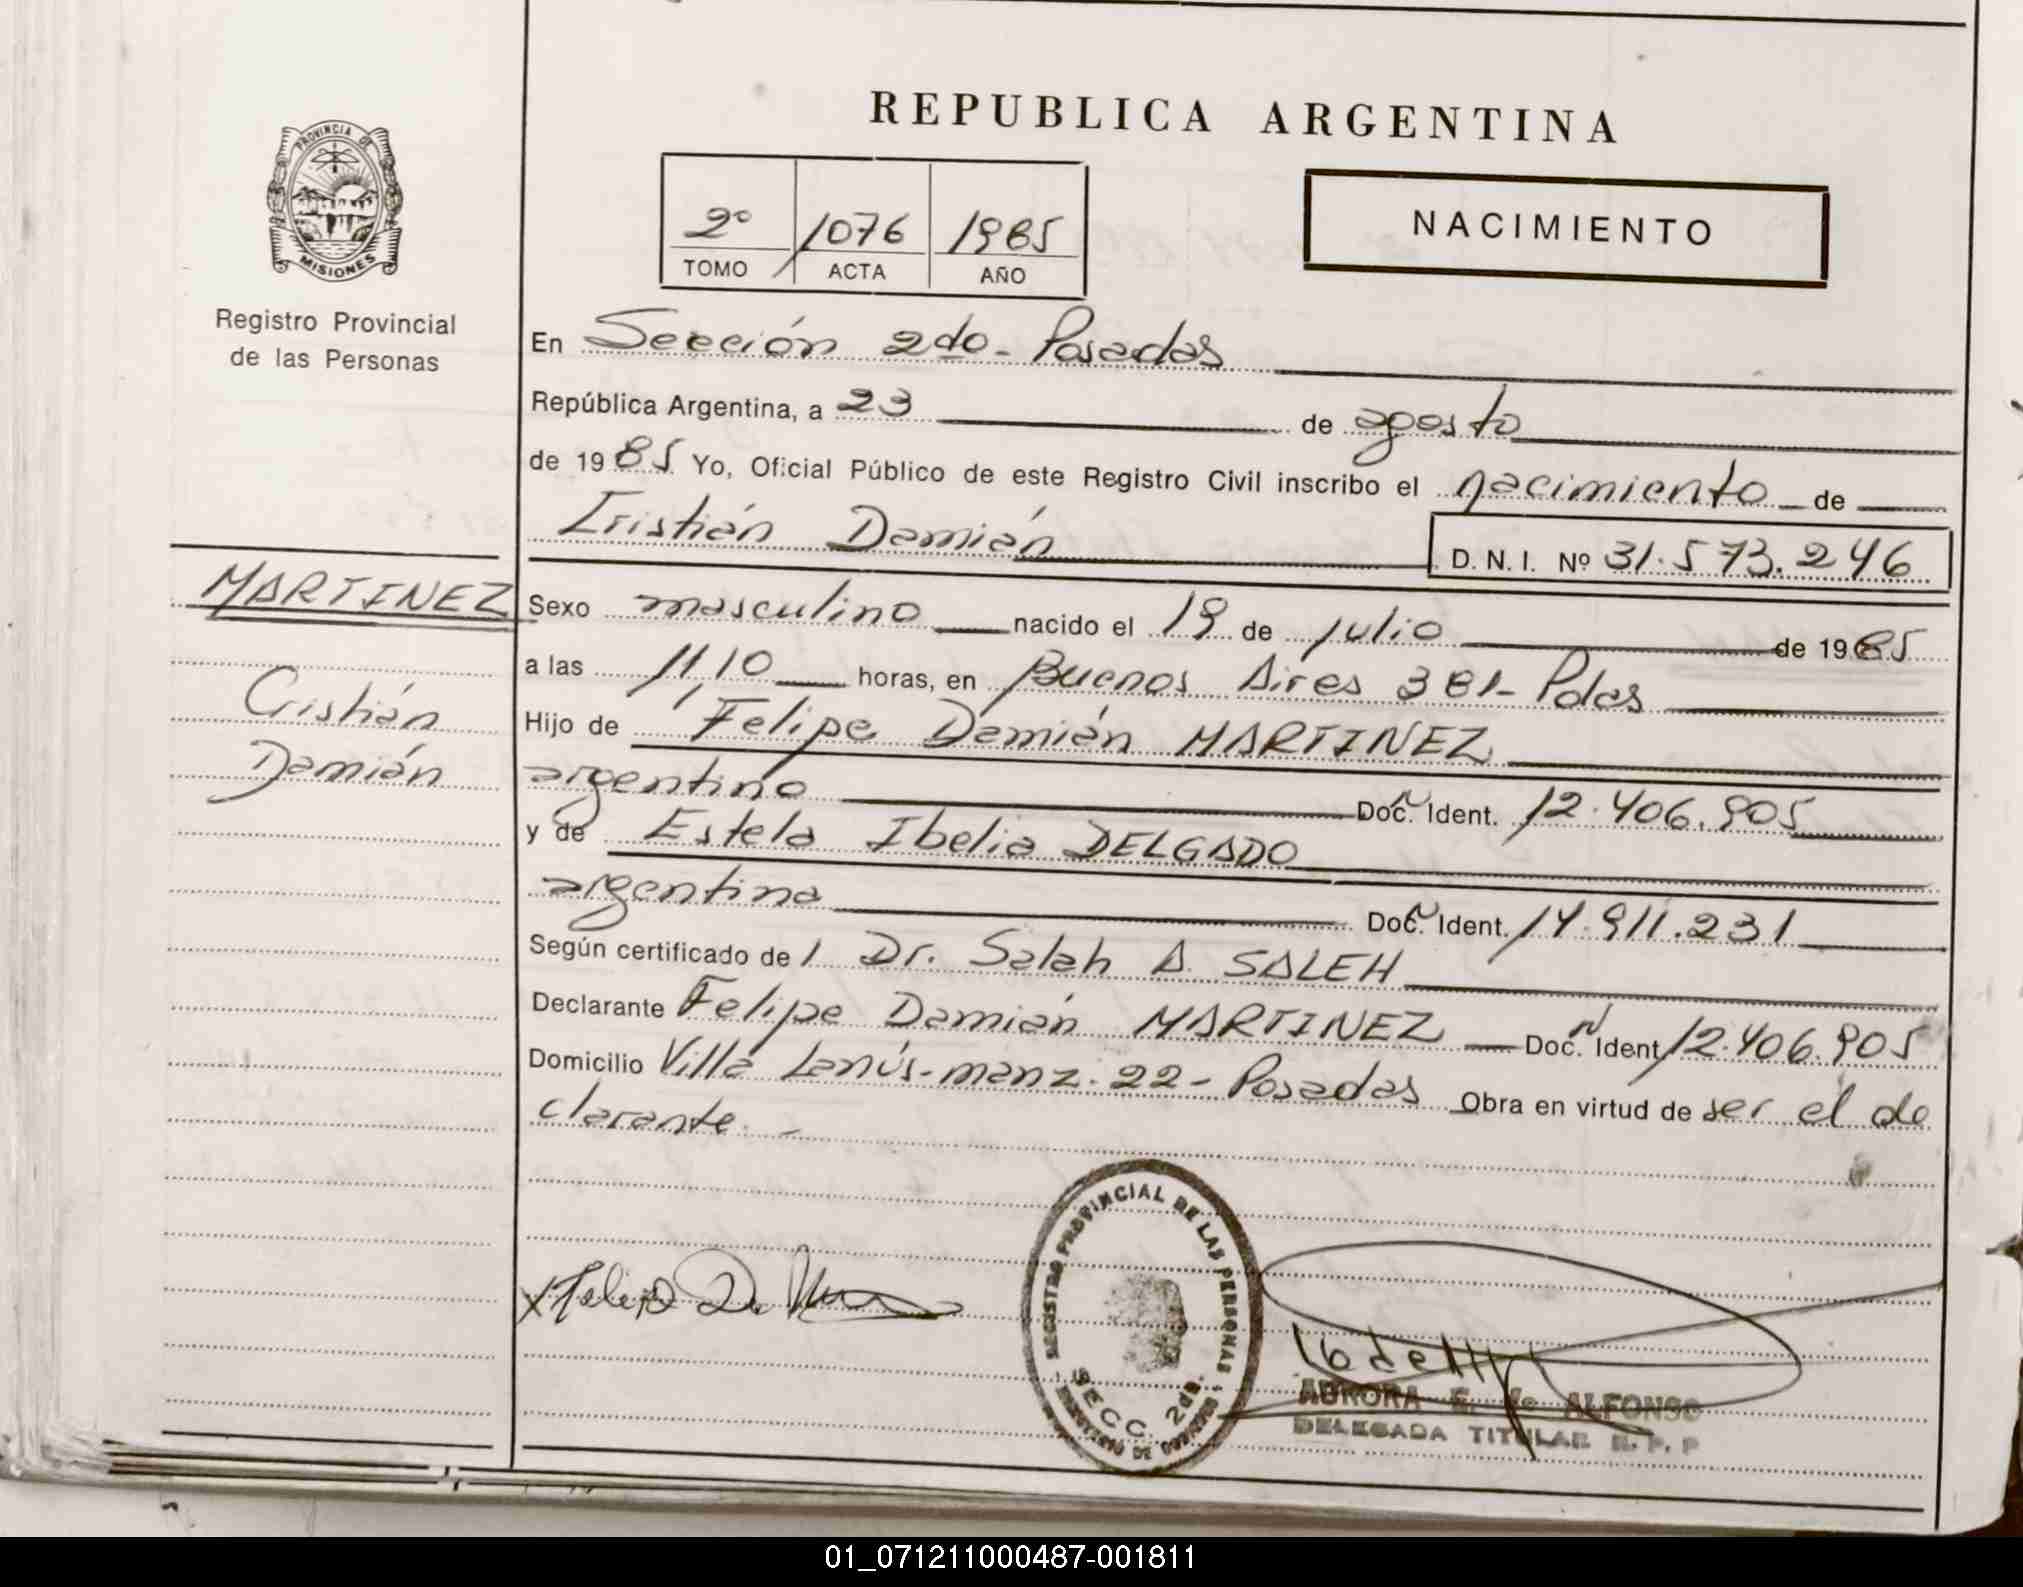 REPUBLICA ARGENTINA
PROVINCIA DE MISIONES
Registro Provincial
de las Personas
2º 1076 1985
TOMO ACTA AÑO
NACIMIENTO
En Sección 2do - Posadas
República Argentina, a 23 de agosto
de 1985 Yo, Oficial Público de este Registro Civil inscribo el nacimiento de
Cristián Damián
D. N. I. Nº 31.573.246
MARTINEZ
Cristián
Damián
Sexo masculino nacido el 19 de julio de 1985
a las 11,10 horas, en Buenos Aires 381 - Pdas
Hijo de Felipe Damián MARTINEZ
argentino Doc. Ident. 12.406.905
y de Estela Ibelia DELGADO
argentina Doc. Ident. 14.911.231
Según certificado de l Dr. Salah A. SALEH
Declarante Felipe Damián MARTINEZ Doc. Ident 12.406.905
Domicilio Villa Lanús - manz. 22 - Posadas Obra en virtud de ser el de
clarante. -
REGISTRO PROVINCIAL DE LAS PERSONAS
SECC. 2da.
AURORA E. de ALFONSO
DELEGADA TITULAR R. P. P
01_071211000487-001811